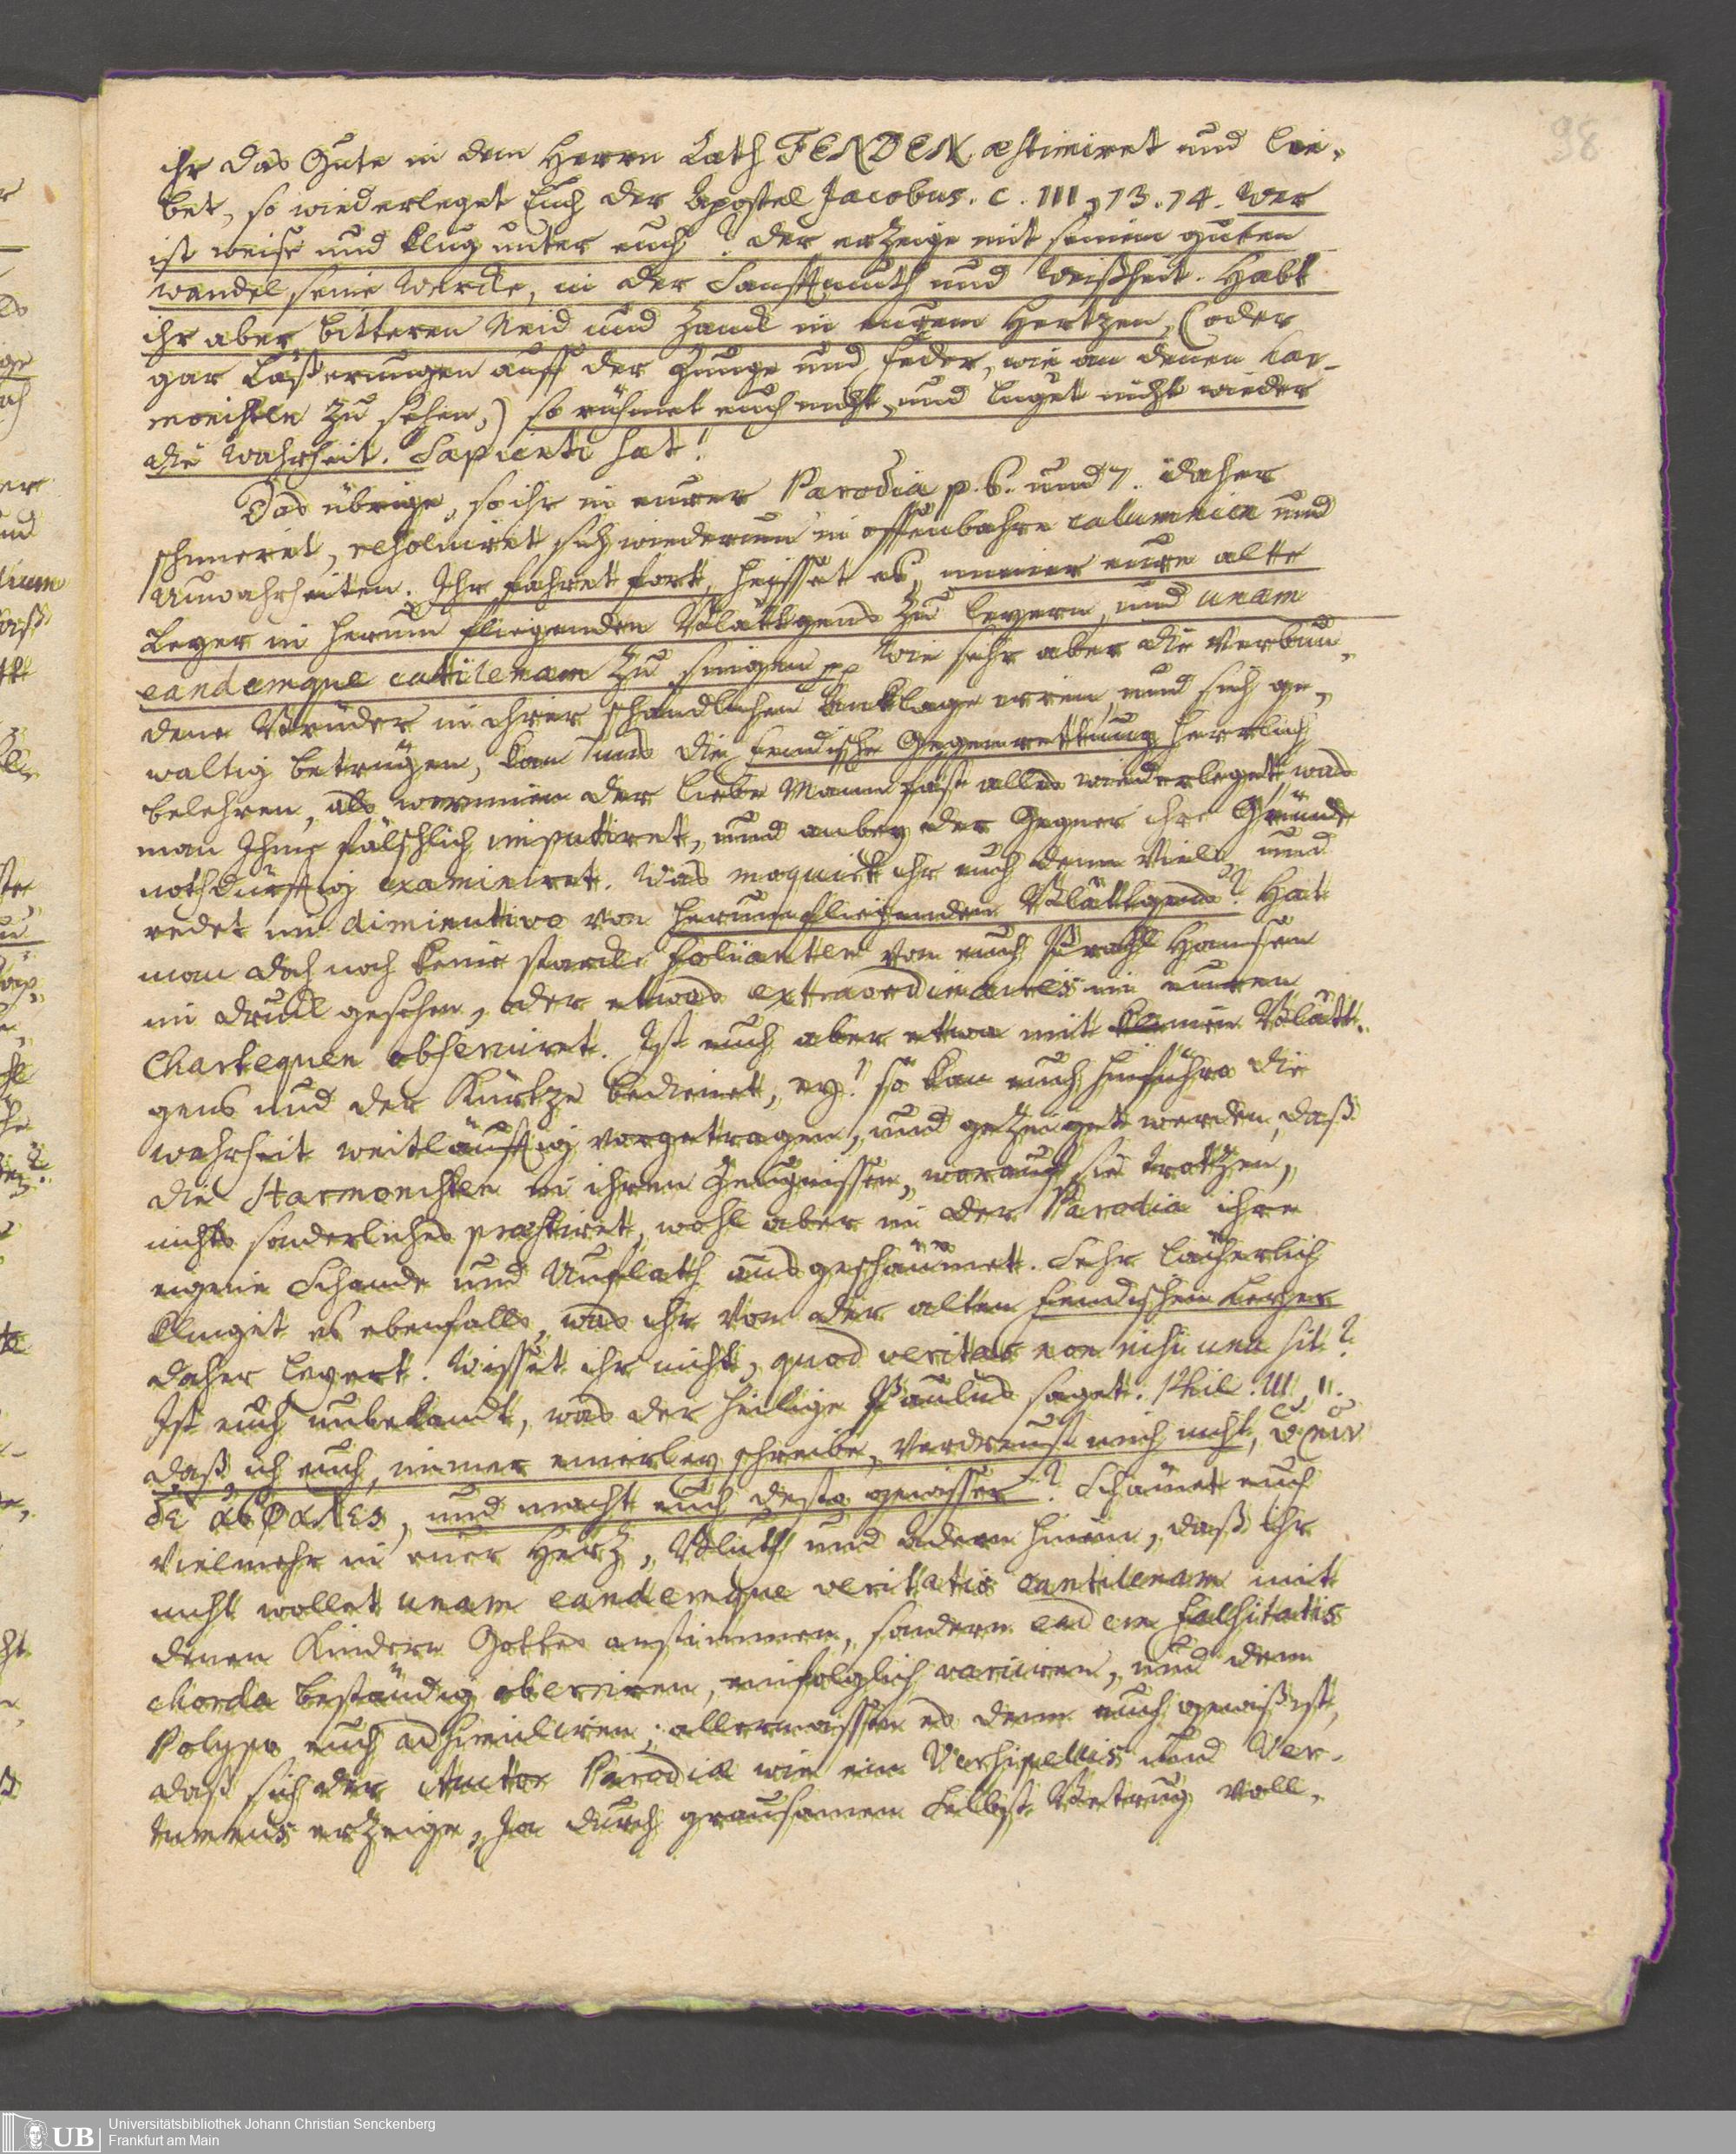 98
ihr das Gute in dem Herrn Rath FENDEN æstimiret und lie-
bet, so wiederleget Euch der Apostel Jacobus. c. III, 13. 14. Wer
ist weise und klug unter euch? der erzeige mit seinem guten
wandel seine Wercke, in der Sanfftmuth und Weißheit. Habt
ihr aber bitteren Neid und Zanck in eurem Hertzen, (oder
gar Läßterungen auff der Zunge und Feder, wie an denen Har-
monisten zu sehen,) so rühmet euch nicht, und luget nicht wieder
die Wahrheit. Sapienti sat!
Das übrige, so ihr in eurer Parodia p. 6. und 7. daher
schmieret, resolviret sich wiederum in offenbahre calumnien und
Unwahrheiten. Ihr fahret fort, heisset es, immer eure alte
Leyer in herum fliegenden Blättgens zu leyern, und unam
eandemque cantilenam zu singen pp Wie sehr aber die Verbun-
dene Brüder in ihrer schandlichen Anklage irren, und sich ge-
waltig betrügen, kan uns die Fendische Gegenrettung herrlich
belehren, als worinnen der liebe Mann fast alles wiederleget, was
man Ihme fälschlich imputiret, und anbey der Gegner ihre Gründe
nothdürfftig examiniret. Was moquirt ihr euch denn viel, und
redet in diminutivo von herumfliegenden Blättgens? Hat
man doch noch keine starcke Folianten von euch Prahl Hansen
im druck gesehen, oder etwas extraordinaires in euren
Chartequen observiret. Ist euch aber etwa mit kleinen Blätt-
gens und der Kürtze bedienet, ey! so kan euch hinführo die
wahrheit weitläufftig vorgetragen, und gezeiget werden, daß
die Harmonisten in ihren Zeugnissen, worauf sie trotzen,
nichts sonderliches præstiret, wohl aber in der Parodia ihre
eigene Schande und Unflath ausgeschäumet. Sehr lächerlich
klinget es ebenfalls, was ihr von der alten Fendischen Leyer
daher leyert. Wisset ihr nicht, quod veritas non nisi una sit?
Ist euch unbekandt, was der heilige Paulus saget. Phil. III, 1.
daß ich euch immer einerley schreibe, verdreust mich nicht, ὑμῖν
δὲ ἀσφαλὲς, und macht euch desto gewisser? Schämet euch
vielmehr in euer Hertz, Bluth und Adern hinein, daß ihr
nicht wollet unam eandemque veritatis cantilenam mit
denen Kindern Gottes anstimmen, sondern eadem falsitatis
chorda beständig oberriren, einfolglich variiren, und dem
Polypo euch adsimiliren; allermassen es denn auch gewiß ist,
daß sich der Autor Parodiæ wie ein Versipellis und Ver-
tumnus erzeige, Ja durch grausamen Selbst Betrug voll-
UB
Universitätsbibliothek Johann Christian Senckenberg
Frankfurt am Main